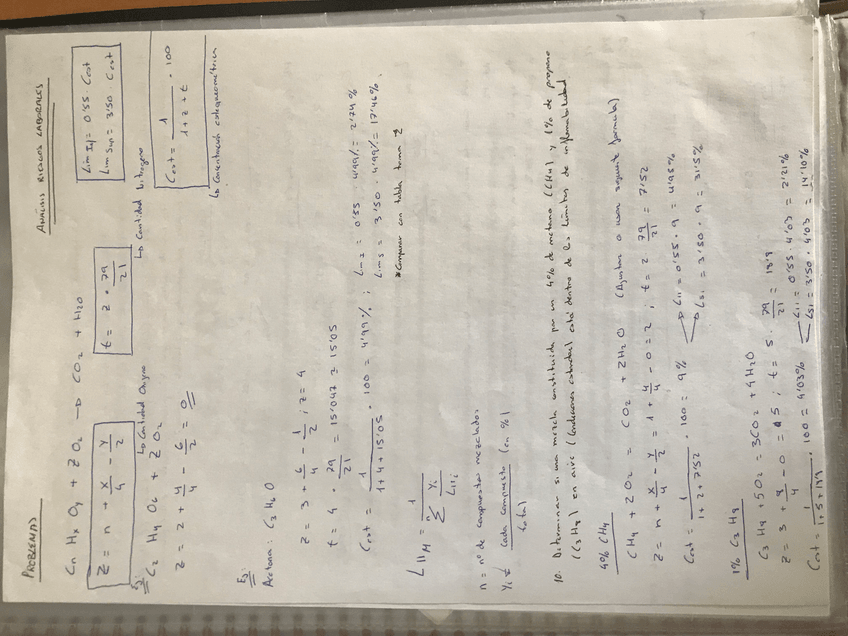 ANÁLISIS RIESGOS LABORALES
PROBLEMAS
Cn Hx Oy + Z O2 → CO2 + H2O
Z = n + x/4 - y/2
t = z · 79/21
Lim Inf = 0'55 · Cest
Lim Sup = 3'50 · Cest
↳ Cantidad Oxígeno
↳ Cantidad Nitrógeno
Cest = 1/(1 + z + t) · 100
↳ Concentración estequiométrica
Ej:
C2 H4 O6 + Z O2
Z = 2 + 4/4 - 6/2 = 0
Ej:
Acetona: C3 H6 O
Z = 3 + 6/4 - 1/2 ; Z = 4
t = 4 · 79/21 = 15'047 ≈ 15'05
Cest = 1/(1 + 4 + 15'05) · 100 = 4'99% ; Lim I = 0'55 · 4'99% = 2'74%
Lim S = 3'50 · 4'99% = 17'46%
* Comparar con tabla tema 2
LIIM = 1/(Σ yi/LIIi)
n
n = nº de compuestos mezclados
yi = cada compuesto (en %)
total
10. Determinar si una mezcla constituida por un 4% de metano (CH4) y 1% de propano
(C3H8) en aire (condiciones estándar) está dentro de los límites de inflamabilidad
4% CH4
CH4 + 2O2 = CO2 + 2H2O (Ajustar o usar siguiente fórmula)
Z = n + x/4 - y/2 = 1 + 4/4 - 0 = 2 ; t = 2 · 79/21 = 7'52
Cest = 1/(1 + 2 + 7'52) · 100 = 9% → LI1 = 0'55 · 9 = 4'95%
→ LS1 = 3'50 · 9 = 31'5%
1% C3 H8
C3 H8 + 5O2 = 3CO2 + 4H2O
Z = 3 + 8/4 - 0 = 5 ; t = 5 · 79/21 = 18'8
Cest = 1/(1 + 5 + 18'8) · 100 = 4'03% → LI1 = 0'55 · 4'03 = 2'21%
LS1 = 3'50 · 4'03 = 14'10%